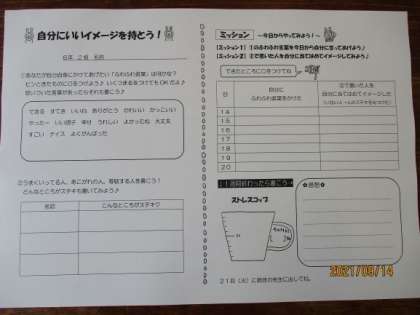 自分にいいイメージを持とう!
6年 2組 名前
①あなたが自分自身にかけてあげたい「ふわふわ言葉」は何かな?
ピンときたものに○をつけよう♪いくつまるをつけてもOKだよ♪
思いついた言葉があったらそれも書こう♪
できる すてき いいね ありがとう かわいい かっこいい
やったー いい調子 幸せ うれしい よかったね 大丈夫
すごい ナイス よくがんばった
②うまくいってる人、あこがれの人、尊敬する人を書こう!
どんなところがステキかも書いてみよう♪
名前
どんなところがステキ?
ミッション ~今日からやってみよう!~
【ミッション1】 1のふわふわ言葉を今日から自分に言ってあげよう♪
【ミッション2】 2で書いた人を自分に当てはめてイメージしてみよう♪
できたところに○をつけてね
日
自分に
ふわふわ言葉をかけた
②で書いた人を
自分に当てはめてイメージした
14
15
16
17
18
19
20
1週間終わったら書こう
ストレスコップ
☆感想☆
2021/09/14